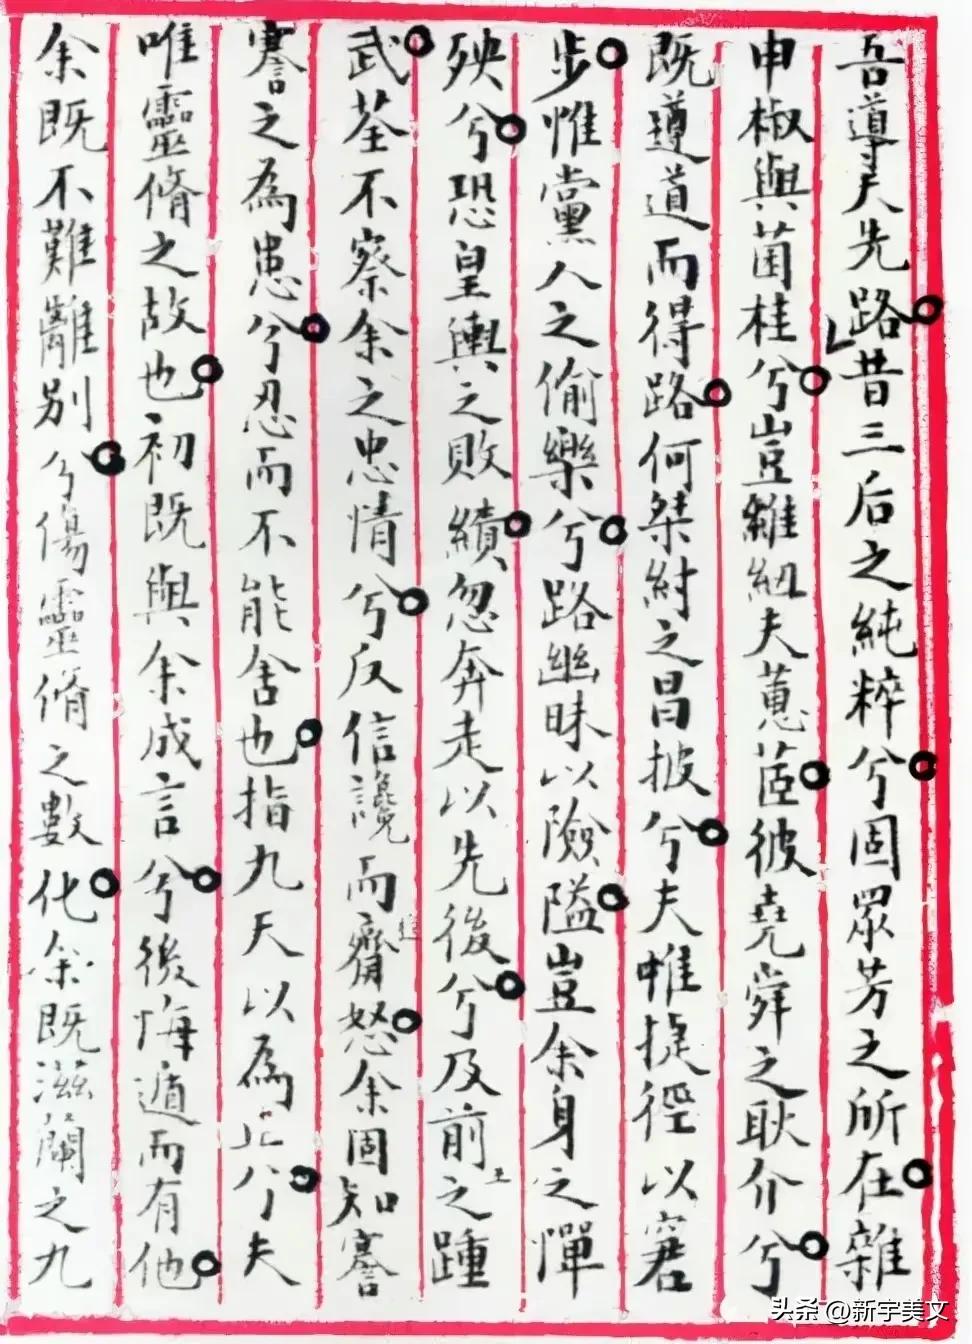 吾導夫先路昔三后之純粹兮固眾芳之所在雜
申椒與菌桂兮豈維紐夫蕙茝彼堯舜之耿介兮
既遵道而得路何桀紂之昌披兮夫唯捷徑以窘
步惟黨人之偷樂兮路幽昧以險隘豈余身之憚
殃兮恐皇輿之敗績忽奔走以先後兮及前之踵
王
武荃不察余之忠情兮反信讒而齌怒余固知謇
謇之為患兮忍而不能舍也指九天以為正兮夫
唯靈脩之故也初既與余成言兮後悔遁而有他
余既不難離別兮傷靈脩之數化余既滋蘭之九
头条 @新宇美文